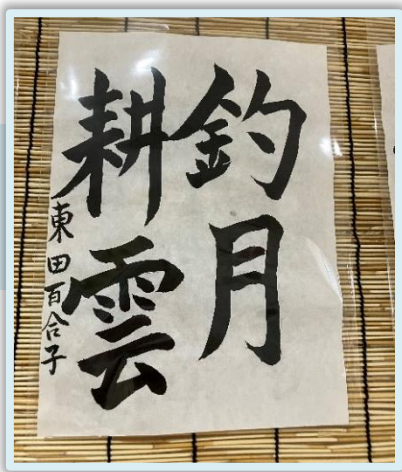 釣月
耕雲
東田百合子